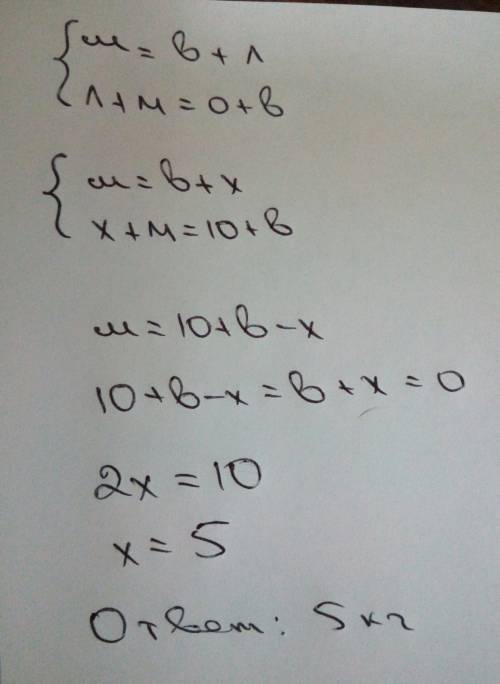 м = в + л
л + м = о + в
м = в + х
х + м = 10 + в
м = 10 + в - х
10 + в - х = в + х = 0
2х = 10
х = 5
Ответ: 5 кг